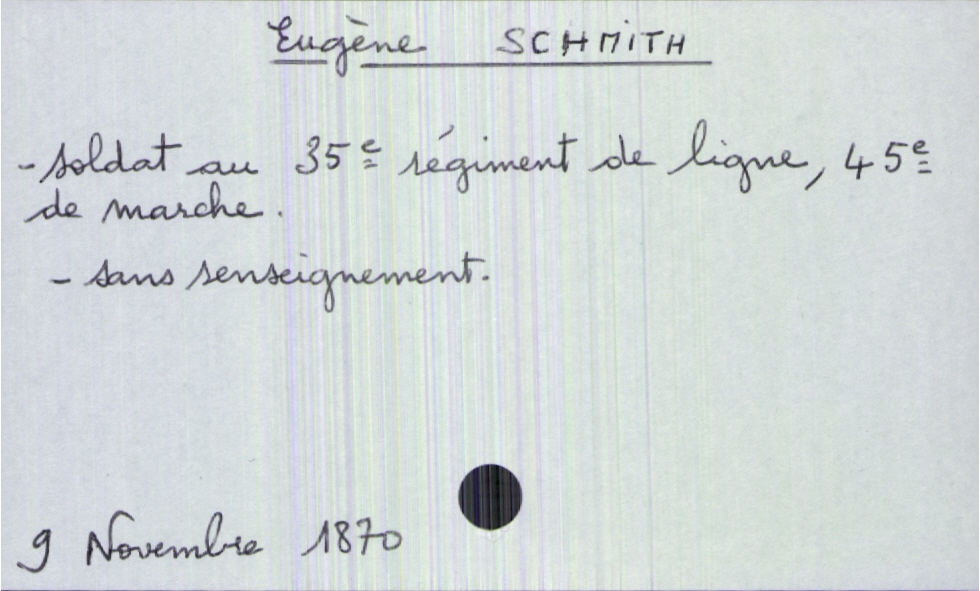 Eugène SCHMITH
- soldat au 35e régiment de ligne, 45e
de marche.
- sans renseignement.
9 Novembre 1870